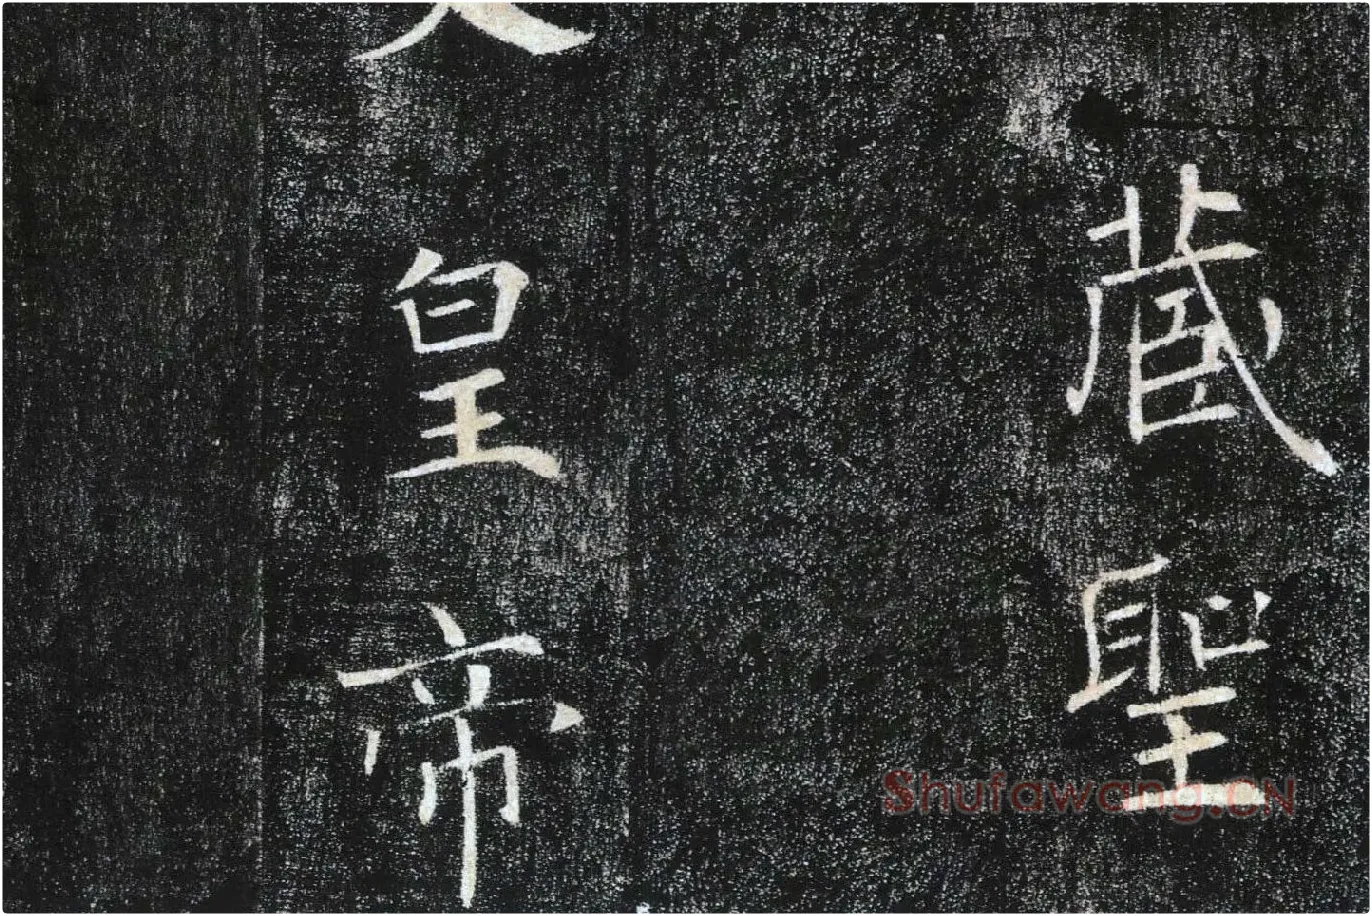 藏聖
皇帝
Shufawang.CN